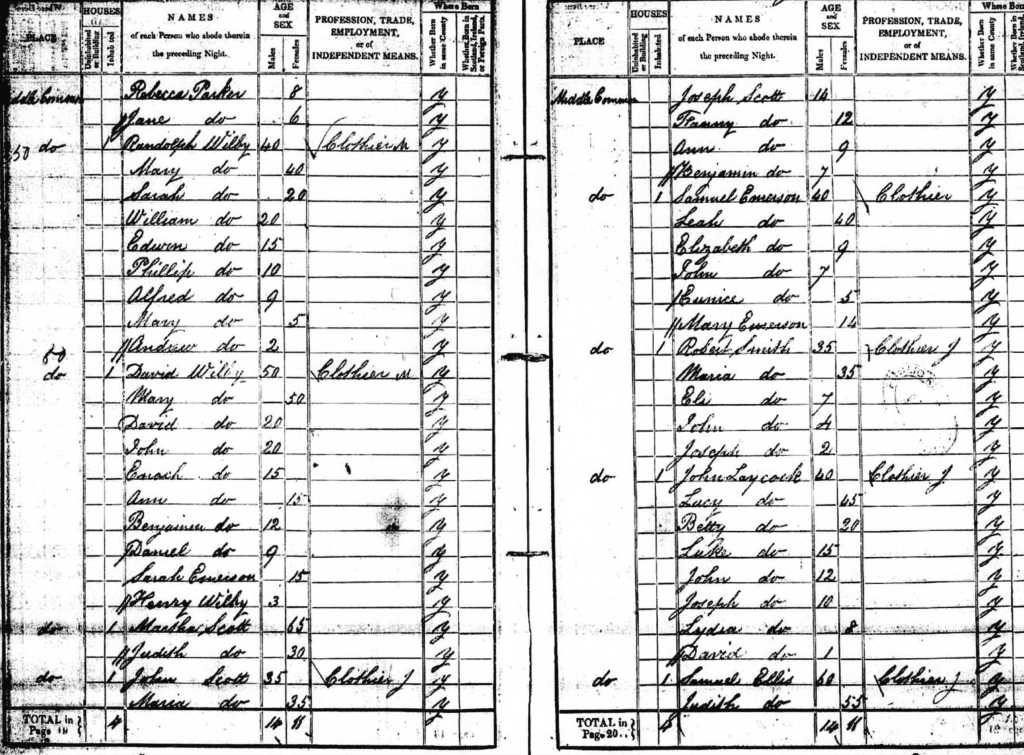 PLACE HOUSES Uninhabited or Building Inhabited NAMES of each Person who abode therein the preceding Night. AGE and SEX Males Females PROFESSION, TRADE, EMPLOYMENT, or of INDEPENDENT MEANS. Where Born Whether Born in same County Whether Born in Scotland, Ireland, or Foreign Parts.
Rebecca Parker 8 y
Jane do 6 y
do 1 Randolph Wilby 40 Clothier M y
Mary do 40 y
Sarah do 20 y
William do 20 y
Edwin do 15 y
Phillip do 10 y
Alfred do 9 y
Mary do 5 y
Andrew do 2 y
do 1 David Wilby 50 Clothier M y
Mary do 50 y
David do 20 y
John do 20 y
Enoch do 15 y
Ann do 15 y
Benjamin do 12 y
Daniel do 9 y
Sarah Emerson 15 y
Henry Wilby 3 y
do 1 Martha Scott 65 y
Judith do 30 y
do 1 John Scott 35 Clothier J y
Maria do 35 y
TOTAL in Page 4 14 11
PLACE HOUSES Uninhabited or Building Inhabited NAMES of each Person who abode therein the preceding Night. AGE and SEX Males Females PROFESSION, TRADE, EMPLOYMENT, or of INDEPENDENT MEANS. Where Born Whether Born in same County
Middle Common Joseph Scott 14 y
Fanny do 12 y
Ann do 9 y
Benjamin do 7 y
do 1 Samuel Emerson 40 Clothier y
Leah do 40 y
Elizabeth do 9 y
John do 7 y
Eunice do 5 y
Mary Emerson 14 y
do 1 Robert Smith 35 Clothier J y
Maria do 35 y
Eli do 7 y
John do 4 y
Joseph do 2 y
do 1 John Laycock 40 Clothier J y
Lucy do 45 y
Betty do 20 y
Luke do 15 y
John do 12 y
Joseph do 10 y
Lydia do 8 y
David do 1 y
do 1 Samuel Ellis 60 Clothier J y
Judith do 55 y
TOTAL in Page 20 14 11